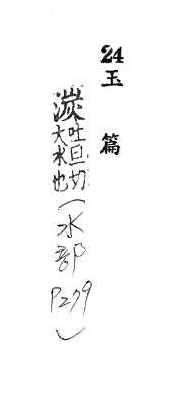 24 玉篇
湠吐旦切大水也(水部P279)